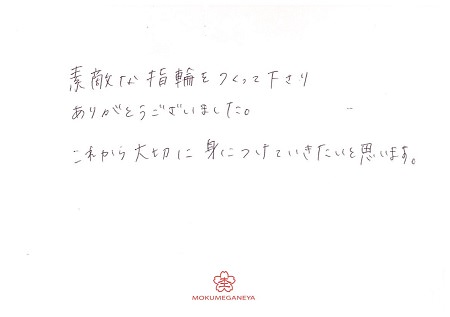 素敵な指輪をつくって下さり
ありがとうございました。
これから大切に身につけていきたいと思います。
MOKUMEGANEYA